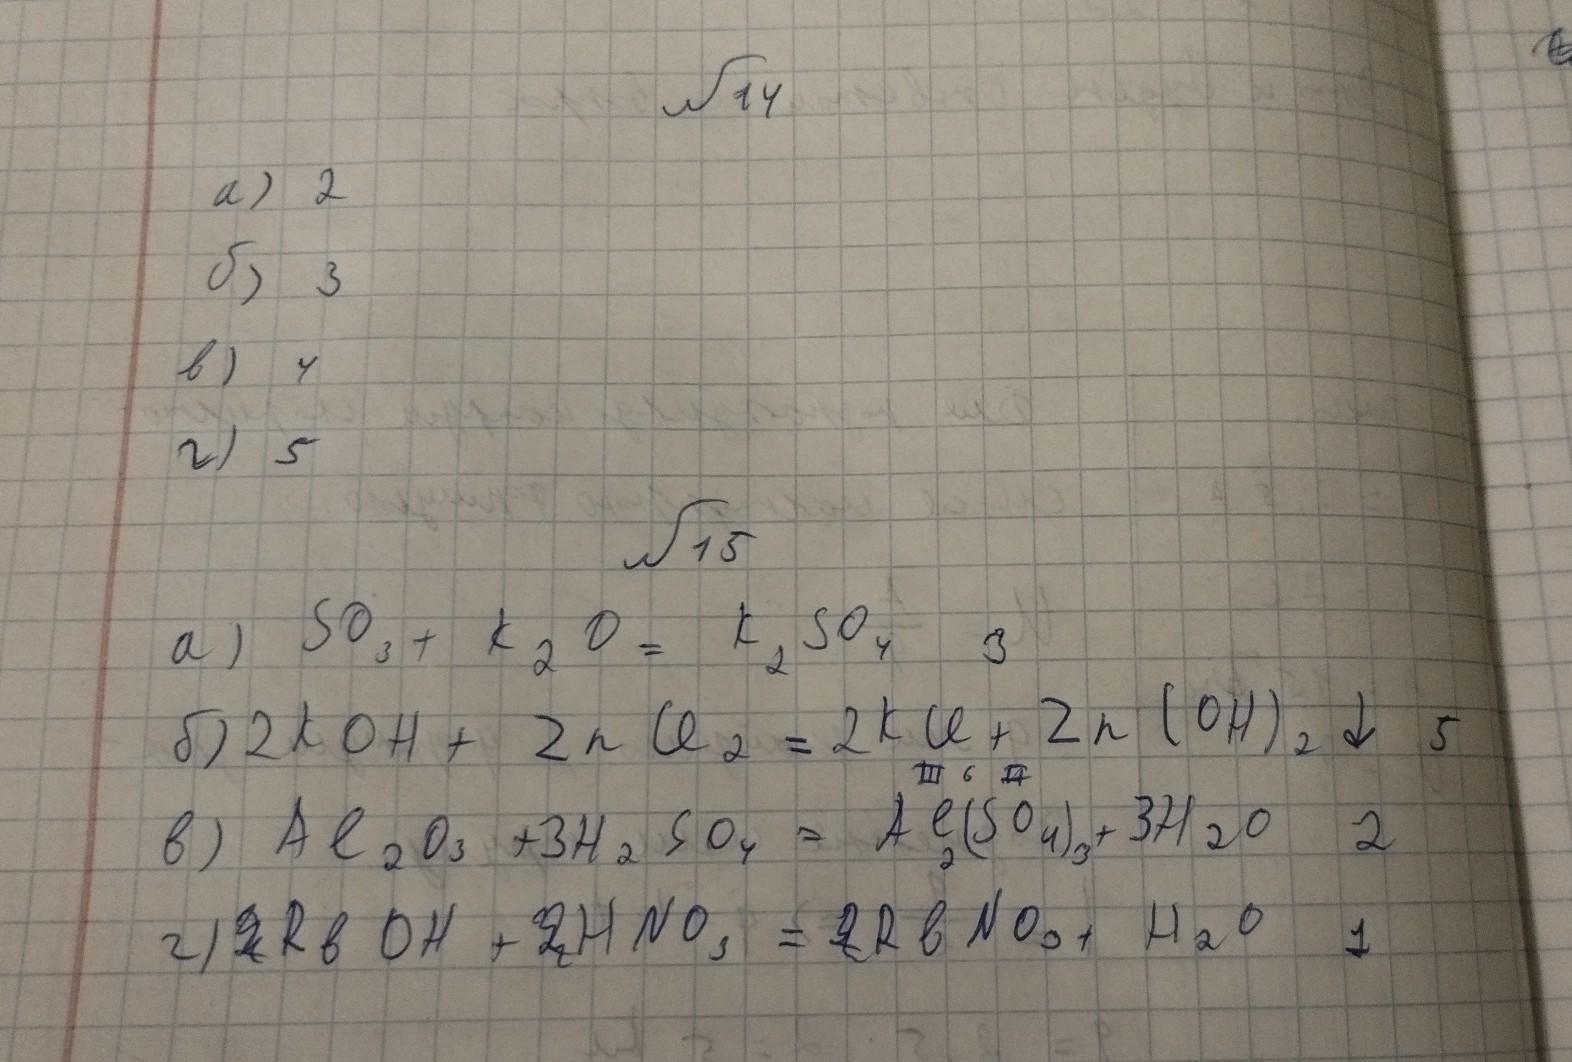 √14
а) 2
б) 3
в) 4
г) 5
√15
а) SO₃ + K₂O = K₂SO₄ 3
б) 2KOH + ZnCl₂ = 2KCl + Zn(OH)₂↓ 5
III 6 II
в) Al₂O₃ + 3H₂SO₄ = Al₂(SO₄)₃ + 3H₂O 2
г) 2RbOH + 2HNO₃ = 2RbNO₃ + H₂O 1